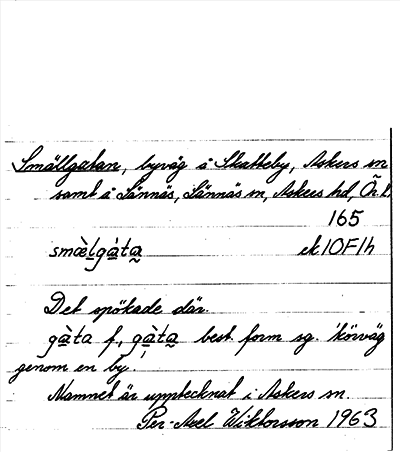 Smällgatan, byväg å Skatteby, Askers sn
samt å Lännäs, Lännäs sn, Askers hd, Ör. l.
165
smæ̀l̲gà̲ta̰ ek 10F1h
Det spökade där.
gà̲ta f., gà̲ta̰ best. form sg. 'körväg
genom en by'.
Namnet är upptecknat i Askers sn.
Per-Axel Wiktorsson 1963